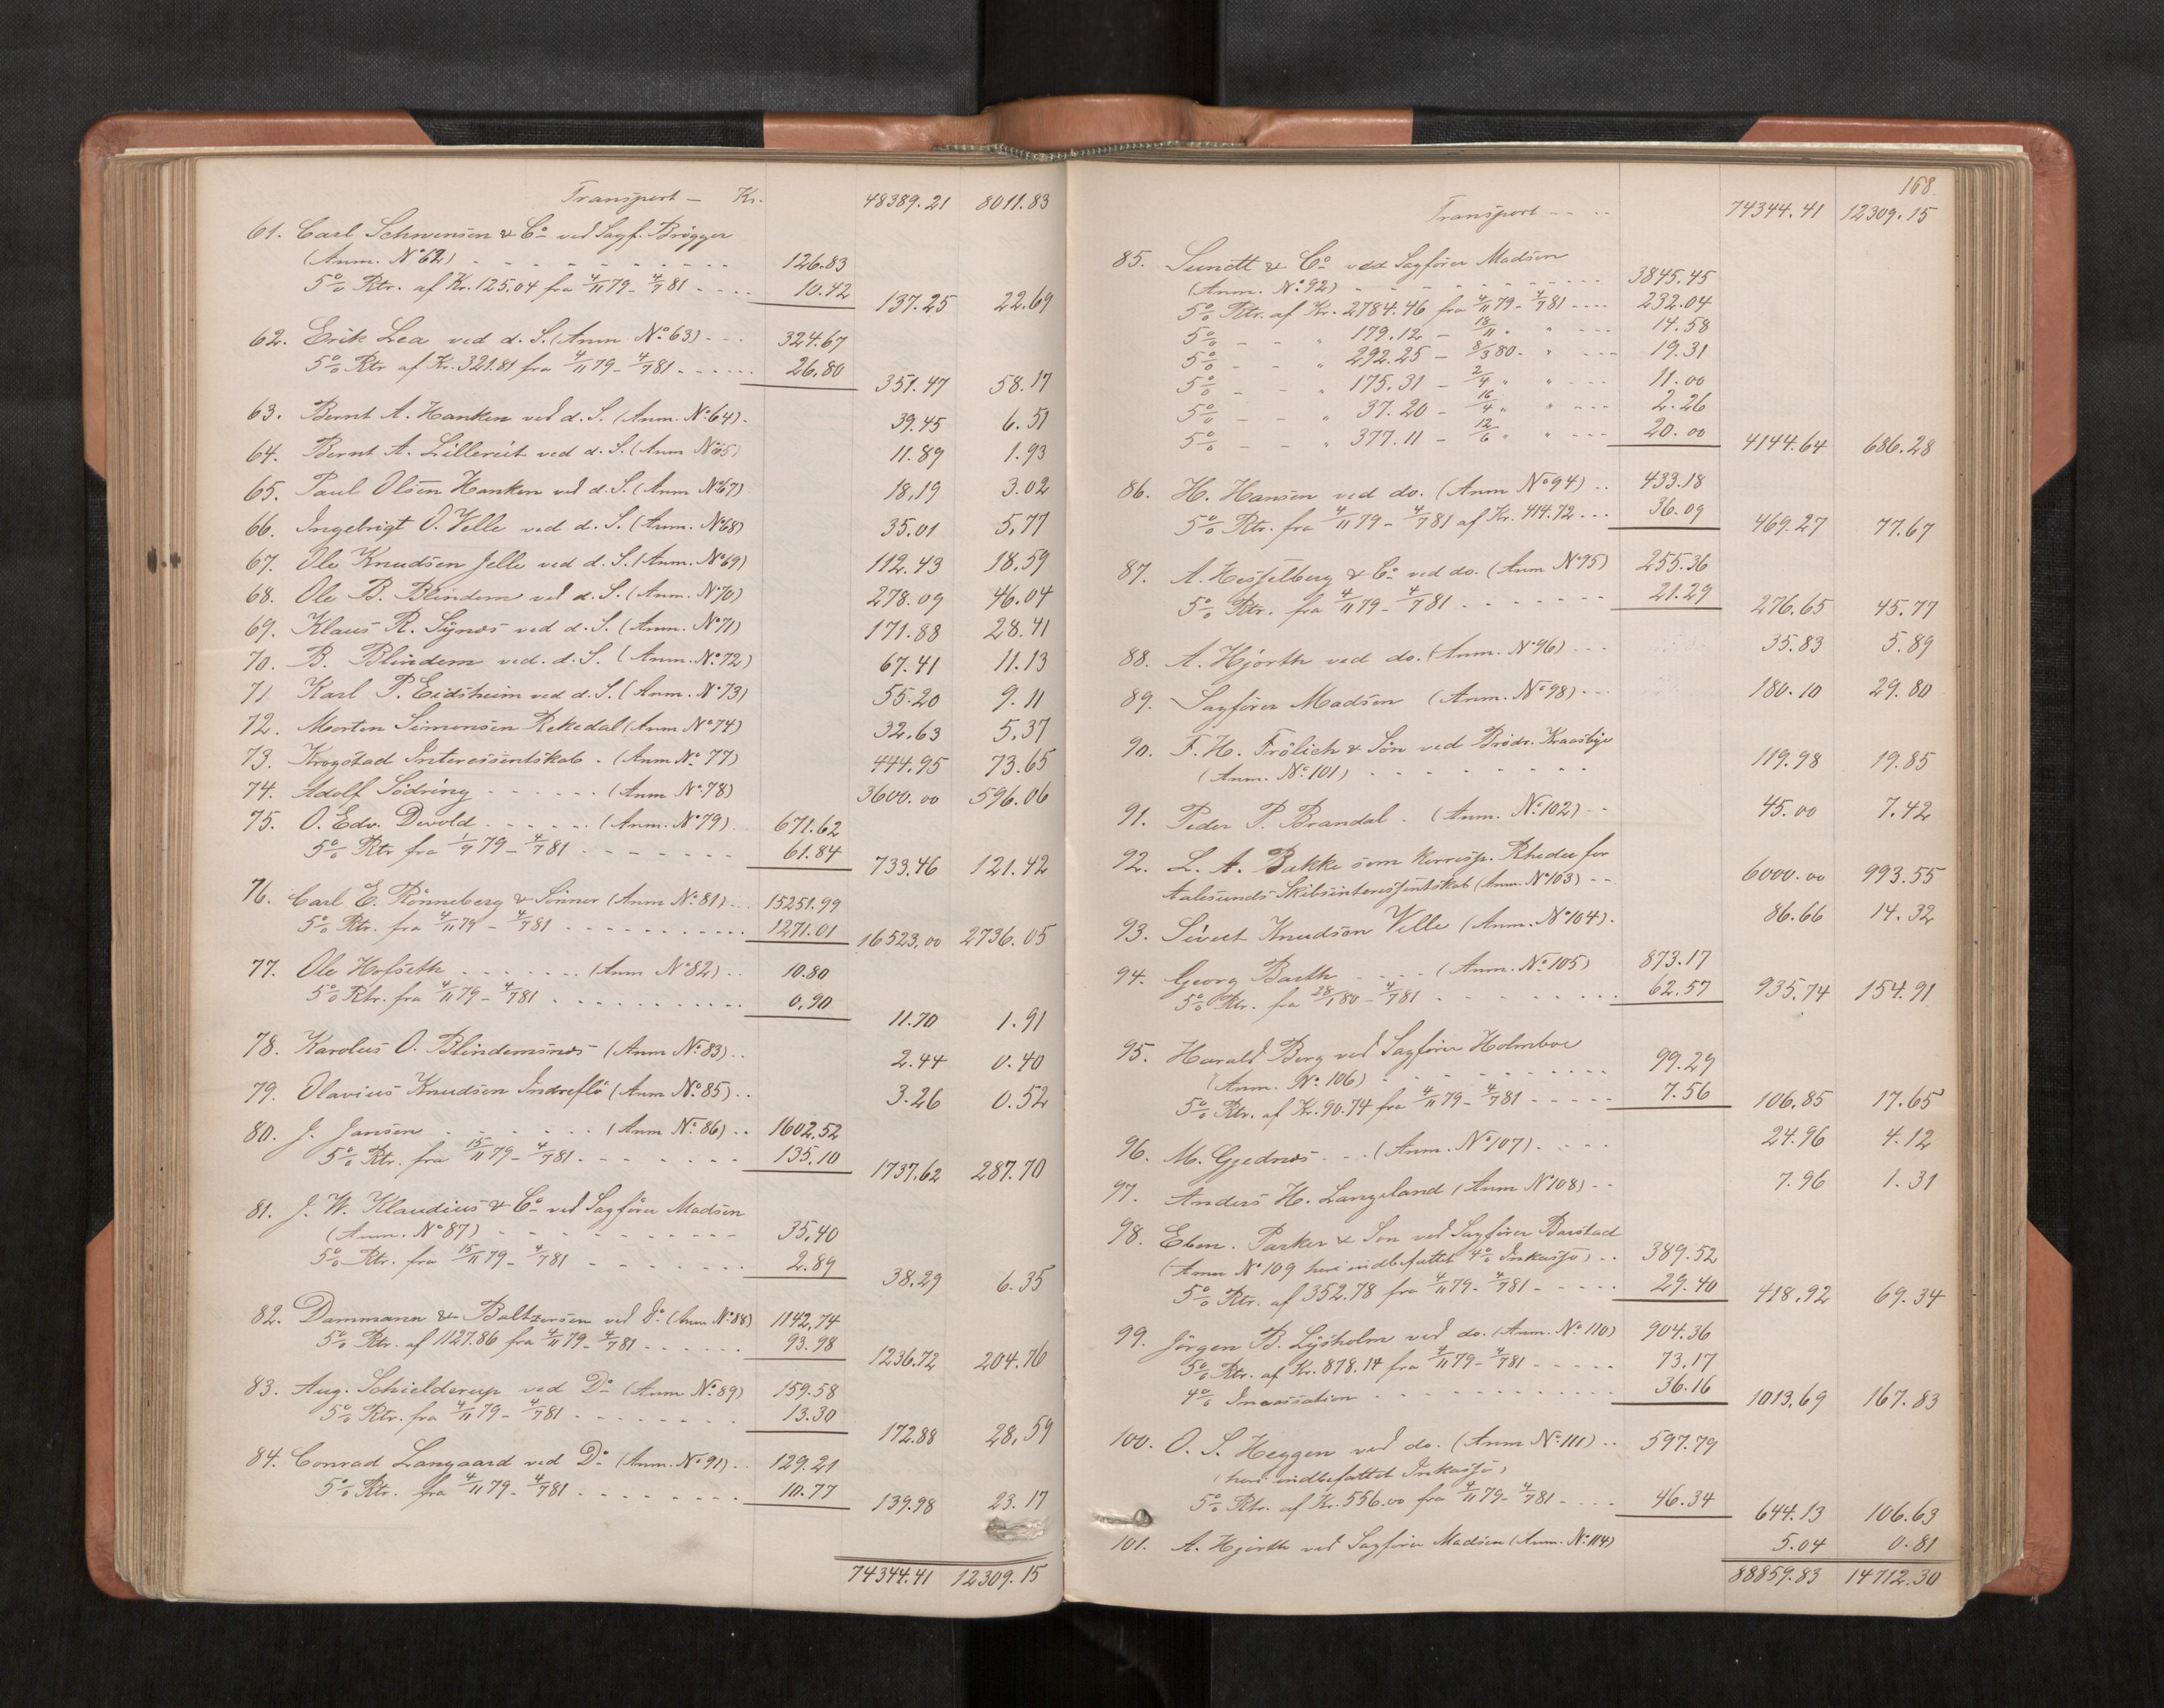 Transport — Kr. 48389.21 8011.83
61. Carl Schwensen & Co. ved Sagf. Brøgger
(Anm. No 62) 126.83
5% Rtr. af Kr. 125.04 fra 4/11 79 - 4/7 81 10.42 137.25 22.69
62. Erik Lea ved d. S. (Anm No 63) 324.67
5% Rtr af Kr. 321.81 fra 4/11 79 - 4/7 81 26.80 351.47 58.17
63. Bernt A. Hanken ved d. S. (Anm. No 64) 39.45 6.51
64. Bernt A. Lillereit ved d. S. (Anm No 65) 11.89 1.93
65. Paul Olsen Hanken ved d. S. (Anm No 67) 18.19 3.02
66. Ingebrigt O. Velle ved d. S. (Anm. No 68) 35.01 5.77
67. Ole Knudsen Jelle ved d. S. (Anm. No 69) 112.43 18.59
68. Ole B. Blindem ved d. S. (Anm. No 70) 278.09 46.04
69. Klaus R. Synæs ved d. S. (Anm. No 71) 171.88 28.41
70. B. Blindem ved. d. S. (Anm. No. 72) 67.41 11.13
71 Karl P. Eidsheim ved d. S. (Anm. No 73) 55.20 9.11
72. Morten Simonsen Rekedal (Anm No 74) 32.63 5.37
73. Krogstad Interessentskab. (Anm No. 77) 444.95 73.65
74. Adolf Södring (Anm No. 78) 3600.00 596.06
75. O. Edv. Devold (Anm. No 79) 671.62
5% Rtr fra 1/9 79 - 4/7 81 61.84 733.46 121.42
76. Carl E. Rönneberg & Sönner (Anm No. 81) 15251.99
5% Rtr. fra 4/11 79 - 4/7 81 1271.01 16523.00 2736.05
77. Ole Hofseth (Anm No 82) 10.80
5% Rtr. fra 4/11 79 - 4/7 81 0.90 11.70 1.91
78. Karolus O. Blindemsnæs (Anm No. 83) 2.44 0.40
79. Olavius Knudsen Indreflö (Anm No. 85) 3.26 0.52
80. J. Jansen (Anm No. 86) 1602.52
5% Rtr. fra 15/11 79 - 4/7 81 135.10 1737.62 287.70
81. J. W. Klaudius & Co. ved Sagförer Madsen
(Anm. No 87) 35.40
5% Rtr. fra 15/11 79 - 4/7 81 2.89 38.29 6.35
82. Dammann & Baltzersen ved Do. (Anm No. 88) 1142.74
5% Rtr. af 1127.86 fra 4/11 79 - 4/7 81 93.98 1236.72 204.76
83. Aug. Schielderup ved Do. (Anm No. 89) 159.58
5% Rtr. fra 4/11 79 - 4/7 81 13.30 172.88 28.59
84. Conrad Langaard ved Do. (Anm. No 91) 129.21
5% Rtr. fra 4/11 79 - 4/7 81 10.77 139.98 23.17
74344.41 12309.15
168.
Transport 74344.41 12309.15
85. Sundt & Co. ved Sagförer Madsen
(Anm. No. 92) 3845.45
5% Rtr. af Kr. 2784.46 fra 4/11 79 - 4/7 81 232.04
5% — - " 179.12 — 18/11 " " 14.58
5% - - " 292.25 — 8/3 80. " 19.31
5% - - " 175.31 — 2/4 " " 11.00
5% - - " 37.20 — 16/4 " " 2.26
5% - - " 377.11 — 12/6 " " 20.00 4144.64 686.28
86. H. Hansen ved do. (Anm No 94) 433.18
5% Rtr. fra 4/11 79 - 4/7 81 af Kr. 414.72 36.09 469.27 77.67
87. A. Hesselberg & Co. ved do. (Anm No 95) 255.36
5% Rtr. fra 4/11 79 - 4/7 81 21.29 276.65 45.77
88. A. Hjorth ved do. (Anm. No 96) 35.83 5.89
89. Sagförer Madsen (Anm. No 98) 180.10 29.80
90. F. H. Frölich & Sön ved Brödr. Kraasbye
(Anm. No. 101) 119.98 19.85
91. Peder P. Brandal. (Anm. No. 102) 45.00 7.42
92. L. A. Bakke som korresp. Rheder for
Aalesunds Skibsinteressentskab (Anm. No 103) 6000.00 993.55
93. Sivert Knudsen Velle (Anm. No 104) 86.66 14.32
94. Georg Barth (Anm. No. 105) 873.17
5% Rtr. fra 28/1 80 - 4/7 81 62.57 935.74 154.91
95. Harald Berg ved Sagförer Holmboe
(Anm. No. 106) 99.29
5% Rtr. af Kr. 90.74 fra 4/11 79 - 4/7 81 7.56 106.85 17.65
96. M. Gjednæs (Anm. No 107) 24.96 4.12
97. Anders H. Langeland (Anm No 108) 7.96 1.31
98. Eben. Parker & Son ved Sagförer Barstad
(Anm No 109 heri indbefattet 4% Inkasso) 389.52
5% Rtr. af 352.78 fra 4/11 79 - 4/7 81 29.40 418.92 69.34
99. Jörgen B. Lysholm ved do. (Anm. No. 110) 904.36
5% Rtr. af Kr. 878.14 fra 4/11 79 - 4/7 81 73.17
4% Incassation 36.16 1013.69 167.83
100. O. S. Heggen ved do. (Anm No. 111) 597.79
(heri indbefattet Inkasso)
5% Rtr. af Kr. 556.00 fra 4/11 79 - 4/7 81 46.34 644.13 106.63
101. A. Hjorth ved Sagförer Madsen (Anm. No. 114) 5.04 0.81
88859.83 14712.30